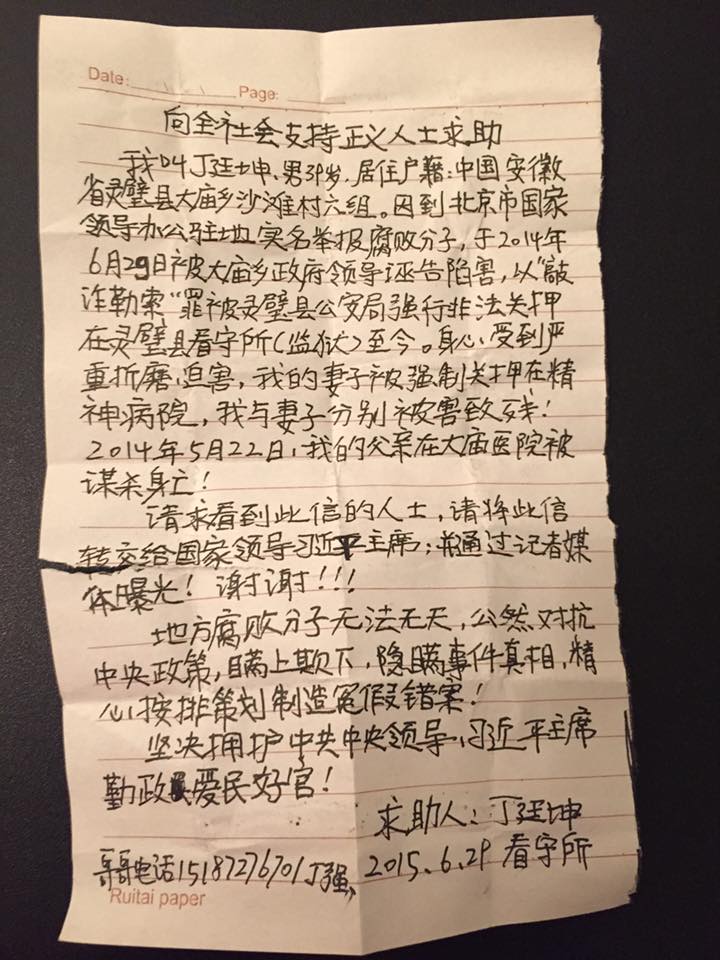 Date:
Page:
向全社会支持正义人士求助
我叫丁廷坤、男39岁、居住户藉:中国安徽
省灵璧县大庙乡沙滩村六组。因到北京市国家
领导办公驻地实名举报腐败分子,于2014年
6月29日被大庙乡政府领导诬告陷害,以“敲
诈勒索“罪被灵璧县公安局强行非法关押
在灵璧县看守所(监狱)至今。身心受到严
重折磨迫害,我的妻子被强制关押在精
神病院,我与妻子分别被害致残!
2014年5月22日,我的父亲在大庙医院被
谋杀身亡!
请求看到此信的人士,请将此信
转交给国家领导习近平主席;并通过记者媒
体曝光!谢谢!!!
地方腐败分子无法无天,公然对抗
中央政策,瞒上欺下,隐瞒事件真相,精
心按排策划制造冤假错案!
坚决拥护中共中央领导、习近平主席
勤政爱民好官!
求助人:丁廷坤
哥哥电话15187276701丁强、 2015.6.29 看守所
Ruitai paper